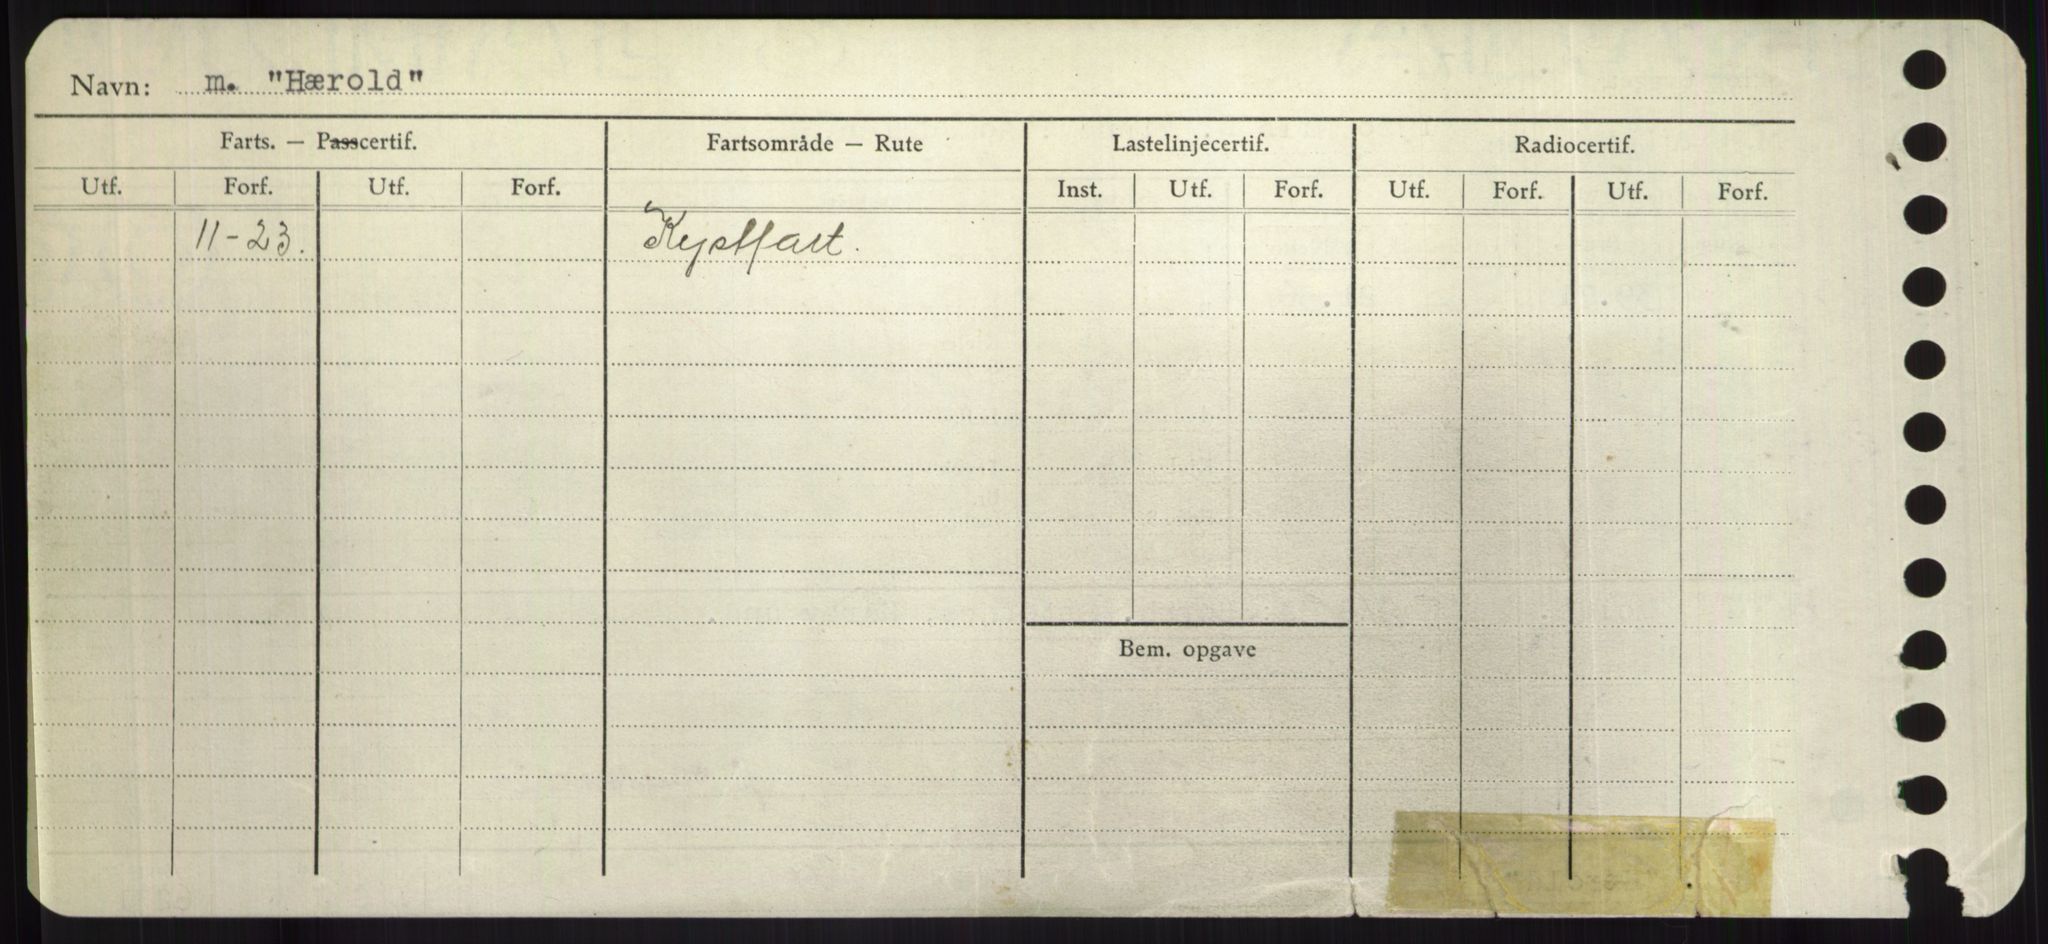 Navn: m. "Hærold"
Farts. — Passcertif. Fartsområde — Rute Lastelinjecertif. Radiocertif.
Utf. Forf. Utf. Forf. Inst. Utf. Forf. Utf. Forf. Utf. Forf.
11-23. Kystfart.
Bem. opgave